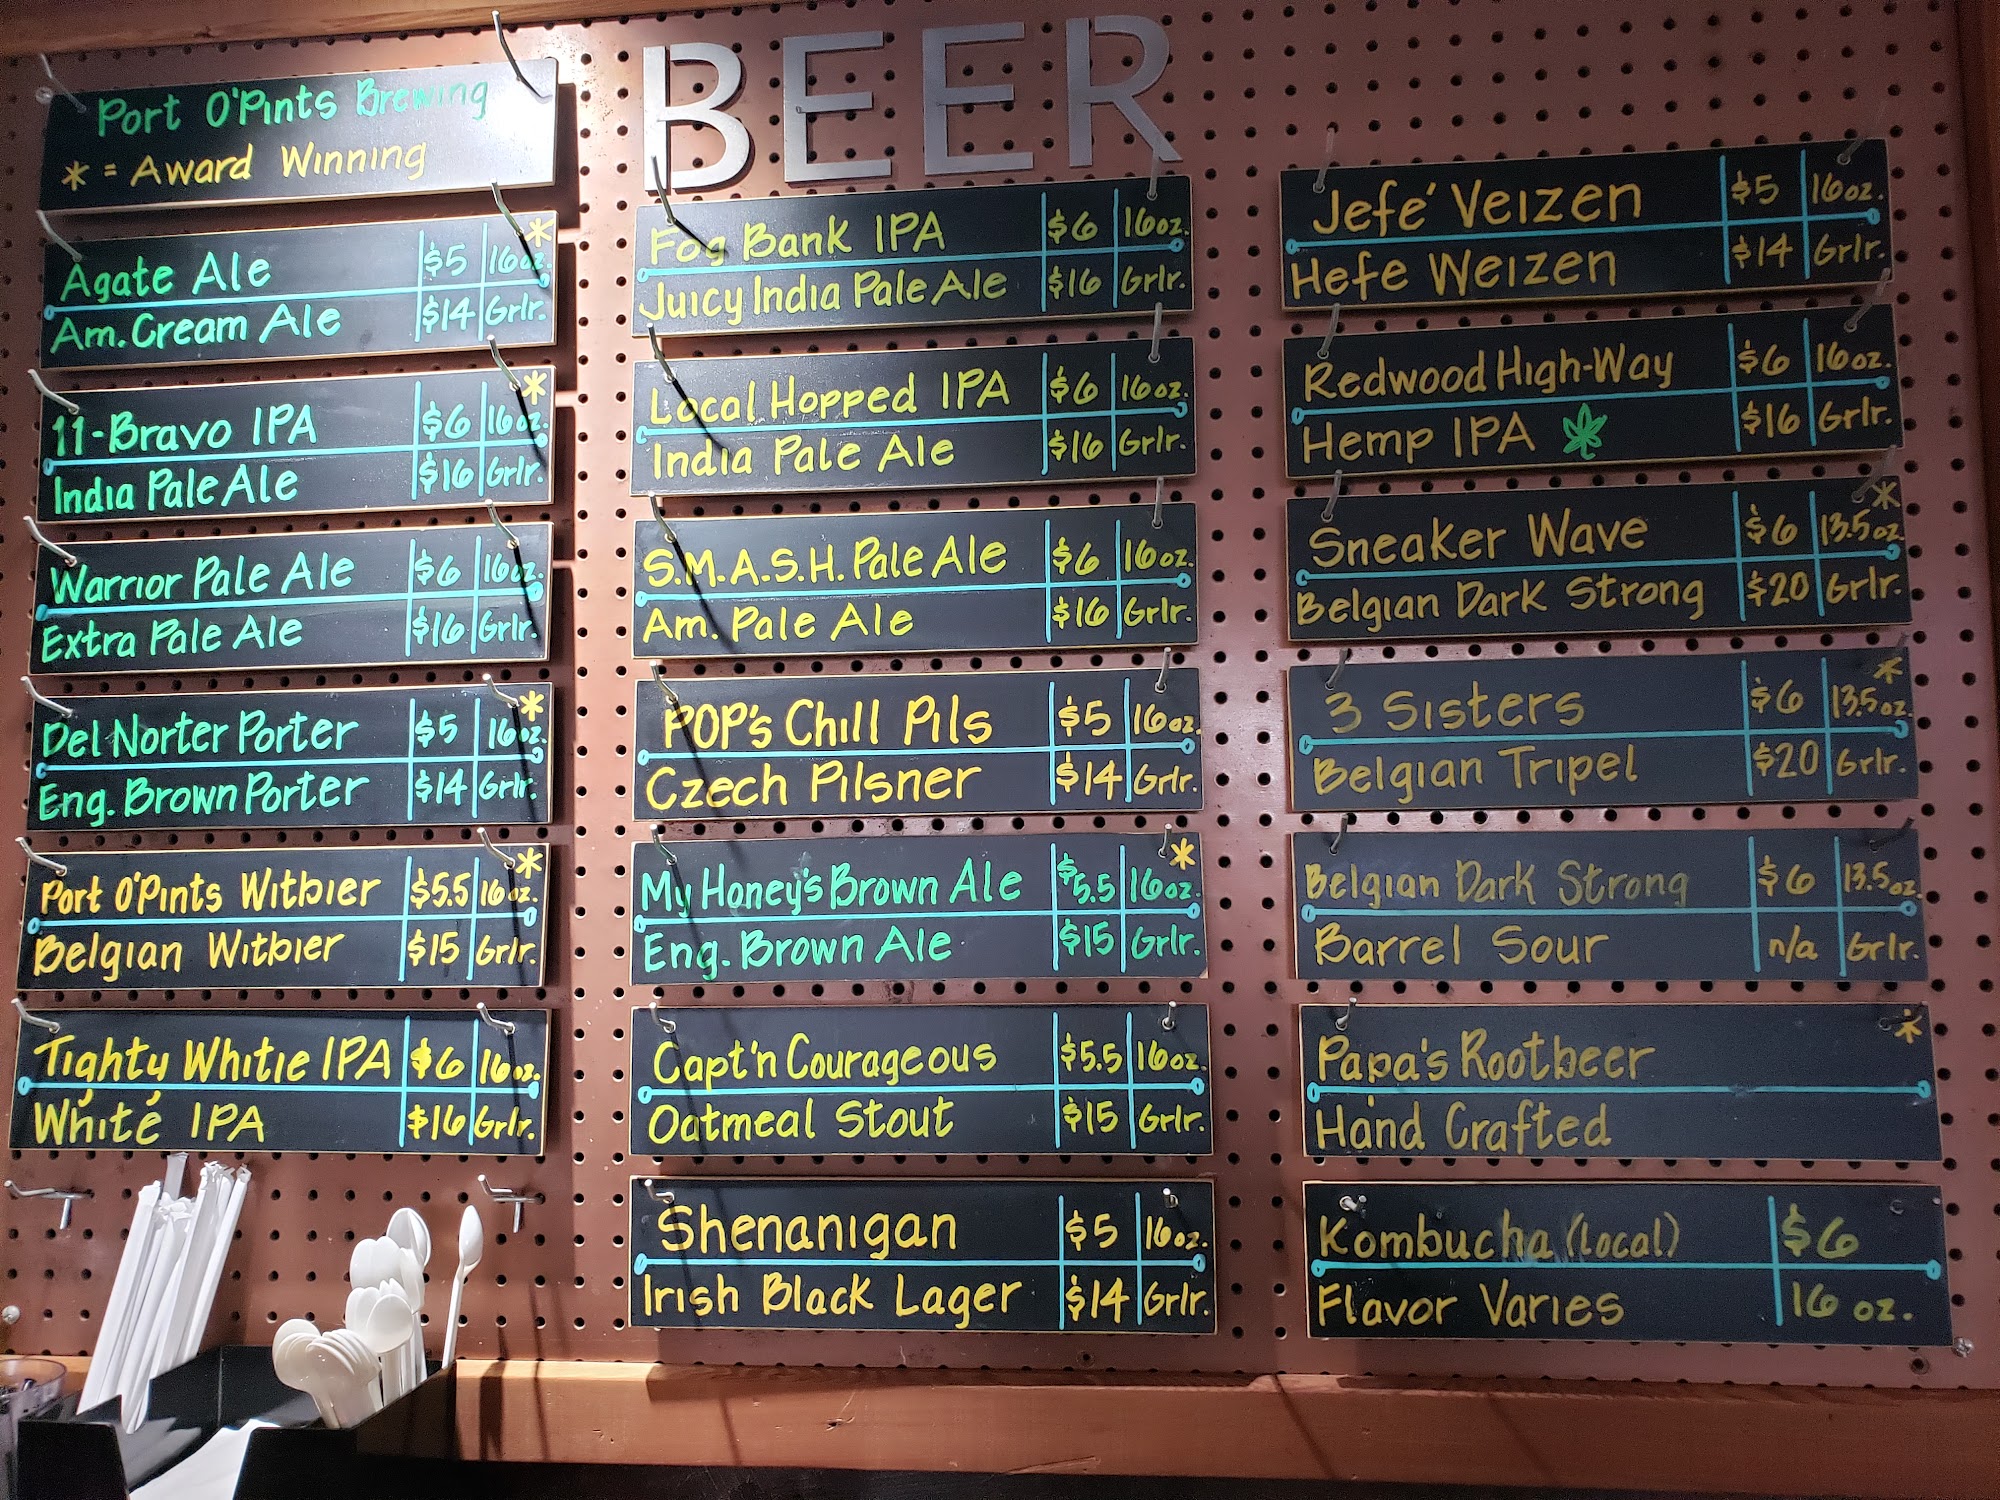 BEER
Port O'Pints Brewing
* = Award Winning
Agate Ale $5 16oz. *
Am. Cream Ale $14 Grlr.
11-Bravo IPA $6 16oz. *
India Pale Ale $16 Grlr.
Warrior Pale Ale $6 16oz.
Extra Pale Ale $16 Grlr.
Del Norter Porter $5 16oz. *
Eng. Brown Porter $14 Grlr.
Port O'Pints Witbier $5.5 16oz. *
Belgian Witbier $15 Grlr.
Tighty Whitie IPA $6 16oz.
White IPA $16 Grlr.
Fog Bank IPA $6 16oz.
Juicy India Pale Ale $16 Grlr.
Local Hopped IPA $6 16oz.
India Pale Ale $16 Grlr.
S.M.A.S.H. Pale Ale $6 16oz.
Am. Pale Ale $16 Grlr.
POP's Chill Pils $5 16oz.
Czech Pilsner $14 Grlr.
My Honey's Brown Ale $5.5 16oz. *
Eng. Brown Ale $15 Grlr.
Capt'n Courageous $5.5 16oz.
Oatmeal Stout $15 Grlr.
Shenanigan $5 16oz.
Irish Black Lager $14 Grlr.
Jefe' Veizen $5 16oz.
Hefe Weizen $14 Grlr.
Redwood High-Way $6 16oz.
Hemp IPA $16 Grlr.
Sneaker Wave $6 13.5oz *
Belgian Dark Strong $20 Grlr.
3 Sisters $6 13.5oz. *
Belgian Tripel $20 Grlr.
Belgian Dark Strong $6 13.5oz.
Barrel Sour n/a Grlr.
Papa's Rootbeer *
Hand Crafted
Kombucha (local) $6
Flavor Varies 16 oz.